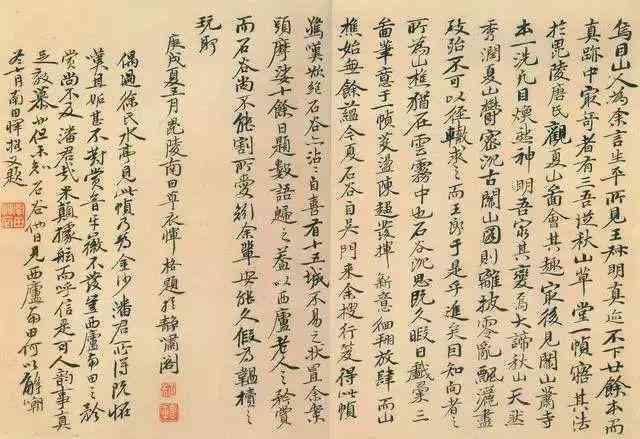 烏目山人為余言生平所見王林明真迹不下廿餘本而
真跡中最奇者有三吾從秋山草堂一幀寤其法
於毘陵唐氏觀夏山圖會其趣最後見關山蕭寺
本一洗凡目煥然神明吾窮其變焉大諦秋山天然
秀潤夏山鬱密沉古關山圖則離披零亂飄灑盡
致殆不可以徑轍求之而王郎于是乎進矣因知向者之
所為山樵猶在雲霧中也石谷沉思既久暇日戲彙三
圖筆意于一幀滌盪陳趨發揮新意徊翔放肆而山
樵始無餘蘊今夏石谷自吳門來余搜行笈得此幀
驚嘆欲絕石谷亦沾沾自喜有十五城不易之狀置余案
頭摩挲十餘日題數語歸之蓋以西廬老人之矜賞
而石谷尚不能割所愛矧余輩安能久假為韞櫝之
玩耶
庚戌夏五月毘陵南田草衣惲格題於靜嘯閣
偶過徐氏水亭見此幀乃為金沙潘君所得既怪
嘆且妬甚不對賞音牙徽不發豈西廬南田之矜
賞尚不及潘君哉米顛據舷而呼信是可人韻事真
足效慕也但未知石谷他日見西廬南田何以解嘲
冬十月南田惲格又題